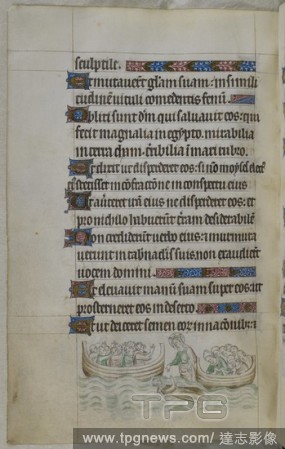 sculptile.
Et mutaverunt gl̃am suam: in simili
tudinem vituli comedentis fenũ.
Obliti sunt dm̃ qui saluauit eos: qui
fecit magnalia in egypto. mirabilia
in terra cham: t̃ribilia in mari rubro.
Et dixit ut disperderet eos: si nõ moyses
stetisset in cõfractõne in conspectu eius
ut auerteret irã eius ne disperderet eos: et
pro nichilo habuerũt t̃ram desiderabilẽ
Non crediderũt uerbo eius: et murmura
uerunt in tab̃nacl̃is suis. non exaudierũt
uocem domini
Et eleuauit manũ suam super eos: ut
prosterneret eos in deserto
Et ut deiceret semen eoꝝ in nacõibus:
TPG
www.tpgnews.com/達志影像